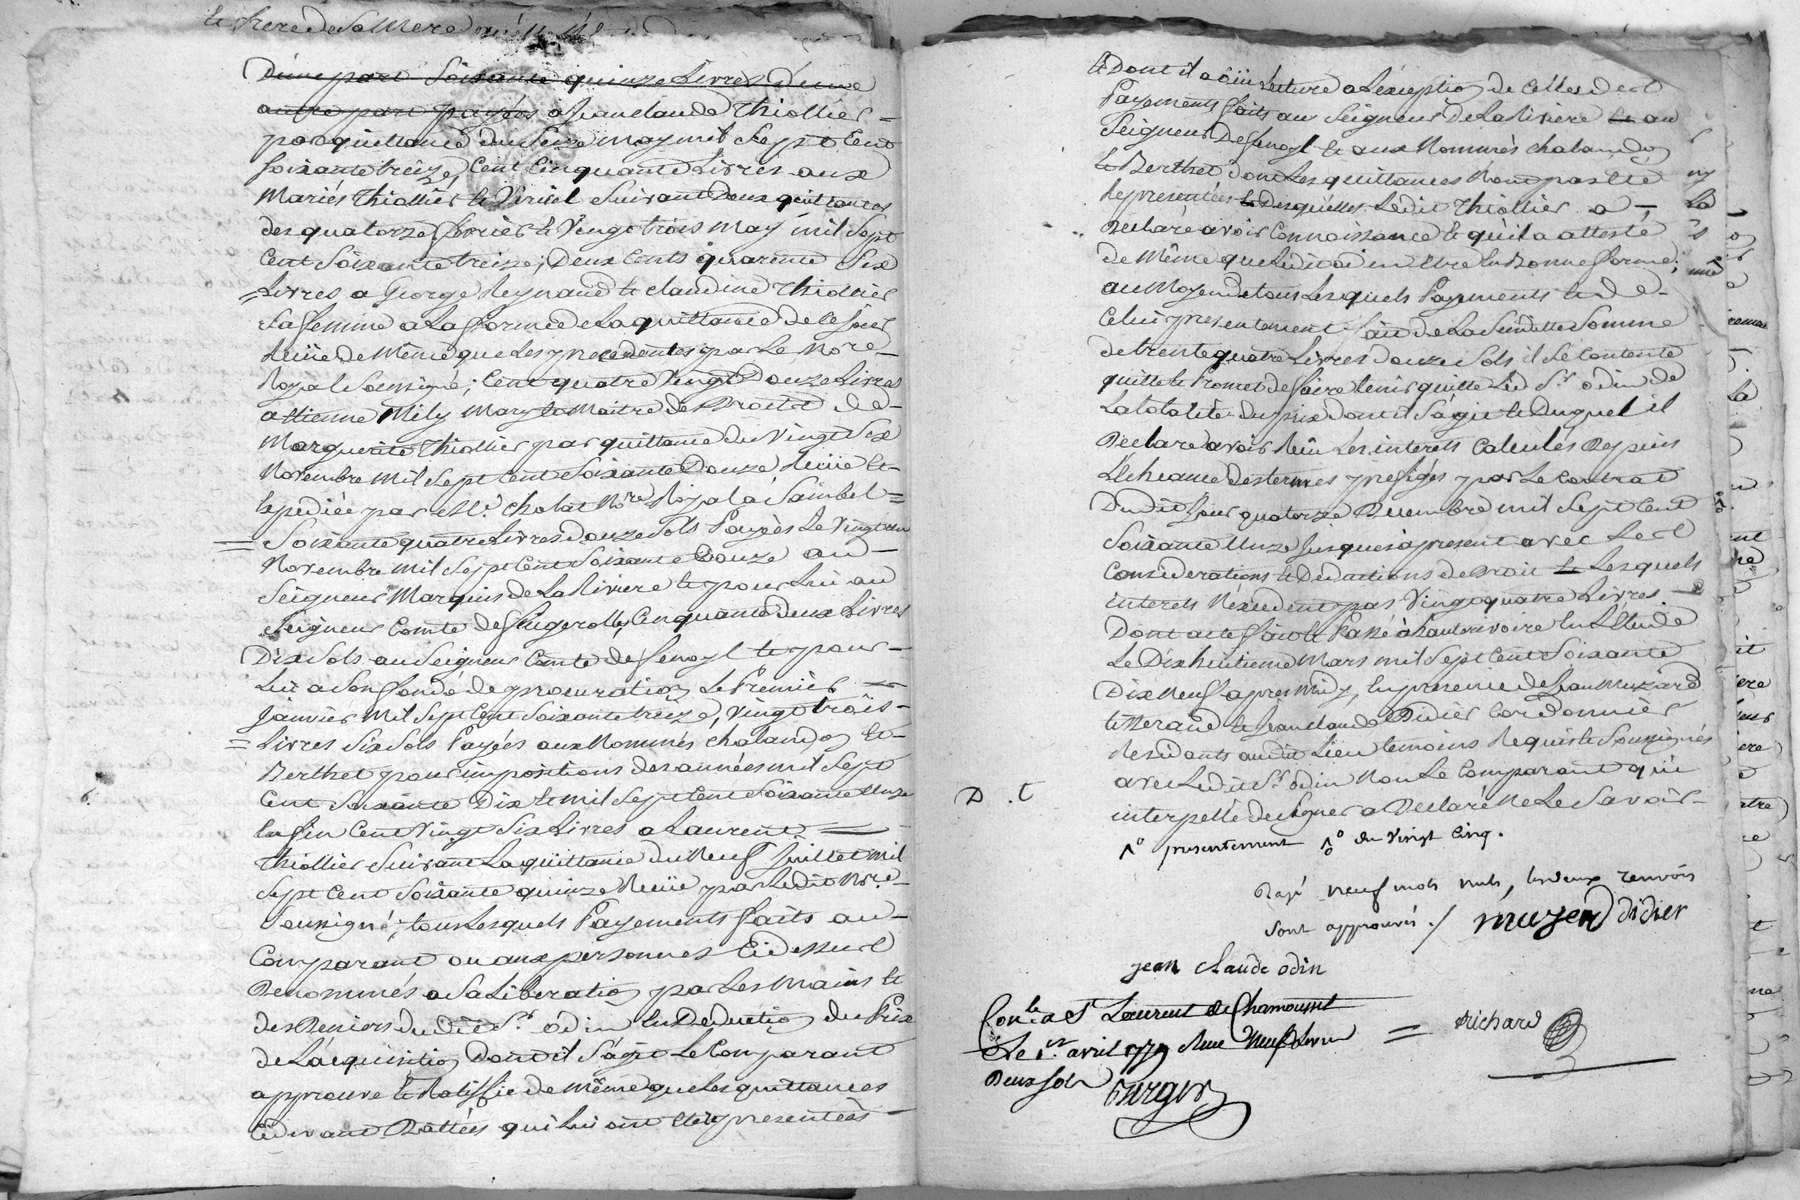 D'une part Soixante quinze Livres D'une
autre part payés a Jean claude Thiollier =
par quittance du Seize may mil Sept Cent
Soixante treize, Cent Cinquante Livres aux
Mariés Thiollier et Viricel Suivant Deux quittances
des quatorze fevrier et Vingt trois May mil Sept
Cent Soixante treize; Deux Cents quarente Six
= Livres a George Reynaud et claudine Thiollier
Sa femme a La forme de La quittance de Ce Jour
Reçüe de Même que Les precedentes par Le Nore
Royal Soussigné; Cent quatre Vingt Douze Livres
a Etienne Mily Mary et Maitre des Droits de
Marguerite Thiollier par quittance du Vingt Six
Novembre Mil Sept Cent Soixante Douze Reçüe Et
Expediée par Me. cholat Nore. Royal a Sainbel =
= Soixante quatre Livres Douze Sols Payées Le Vingt un
Novembre Mil Sept Cent Soixante Douze au
Seigneur Marquis de La Riviere et pour Lui au
Seigneur Comte de fougerolles, Cinquante deux Livres
Dix Sols au Seigneur Comte de fenoyl et pour
Lui a Son fondé de procuration Le Premier =
Janvier Mil Sept Cent Soixante treize, Vingt trois
= Livres Six Sols Payées aux Nommés chalandon Et
Berthet pour impositions des années mil Sept
Cent Soixante Dix et mil Sept Cent Soixante Unze
Enfin Cent Vingt Six Livres a Laurent =
Thiollier Suivant La quittance du Neuf Juillet mil
Sept Cent Soixante quinze Reçüe par Ledit Nore.
Soussigné; tous Lesquels Payements faits au
Comparant ou aux personnes Ci dessus
Denommés a Sa Liberation par Les Mains et
des Deniers dudit Sr. odin En Deduction du Prix
de L'acquisition Dont il S'agit Le Comparant
approuve et Ratiffie de Même que Les quittances
Ci devant Dattées qui Lui ont Eté representées
Et Dont il a oüi Lecture a L'exception de Celles des
Payements faits au Seigneur de La Riviere et au
Seigneur De fenoyl et aux Nommés chalandon
et Berthet Dont Les quittances N'ont pas Eté
Representées et Desquelles Ledit Thiollier a
Declaré avoir Connoissance et qu'il a attesté
de Même que Ledit odin Etre En Bonne forme;
au Moyen de tous Lesquels Payements et de
Celui presentement fait de La Susdite Somme
de trente quatre Livres douze Sols il Se Contente
quitte et Promet de faire tenir quitte Led. Sr. odin de
La totalité du prix dont il S'agit et Duquel il
Declare avoir Reçu Les interets Calculés Depuis
L'Echeance des termes prefigés par Le Contrat
Dudit Jour quatorze Decembre mil Sept Cent
Soixante Unze Jusques a present avec Les
Considerations et Deductions de Droit Lesquels
interets N'excedent pas Vingt quatre Livres
Dont acte fait et Passé a hauterivoire En L'Etude
Le Dix huitieme Mars mil Sept Cent Soixante
Dix Neuf apres Midy, En presence de Jean Muzard
tisserand et Jean claude Didier Cordonnier
Residants audit Lieu temoins Requis et Soussignés
avec Ledit Sr. odin Non Le Comparant qui
D. t
interpellé de Signer a Declaré Ne Le Savoir
presentement du Vingt Cinq.
Rayé neuf mots nuls, les deux renvois
sont approuvés./ muzard didier
jean claude odin
Conlé a St Laurent de Chamousset
Le 1er avril 1779 Reçu Neuf Livres = Richard
Deux Sols